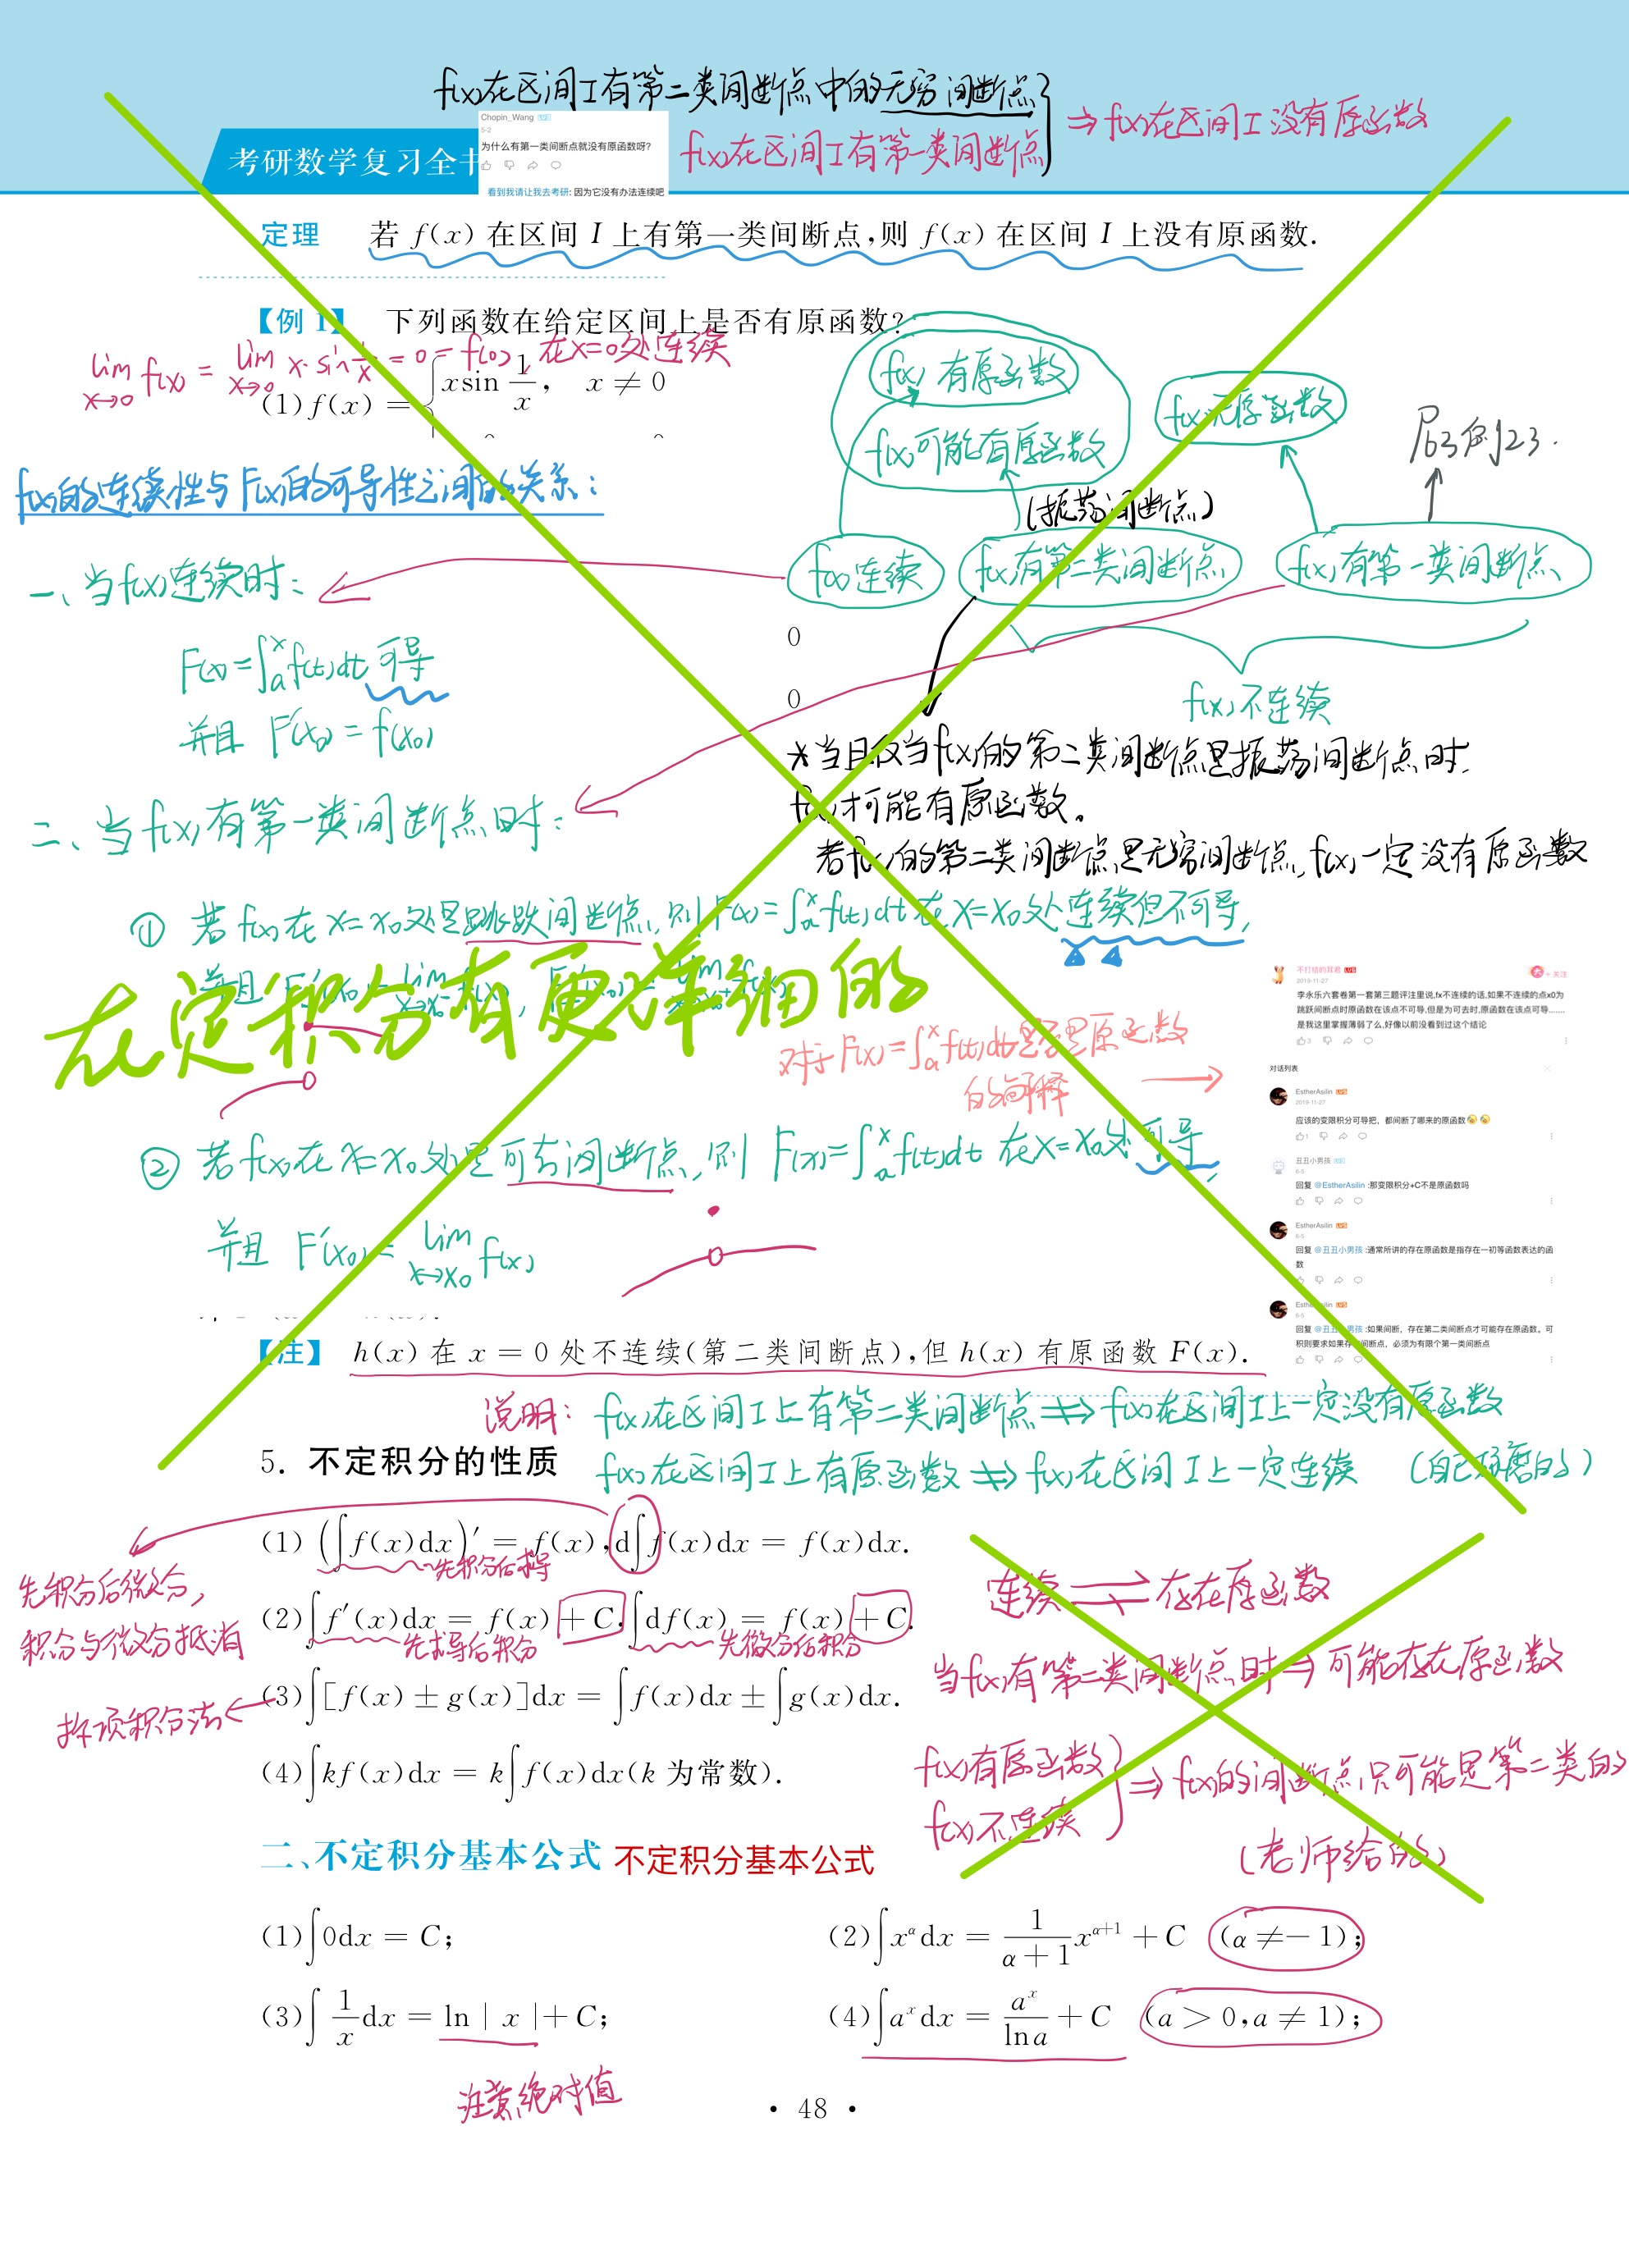 f(x)在区间I有第二类间断点中的无穷间断点
f(x)在区间I有第一类间断点
⇒f(x)在区间I没有原函数
考研数学复习全书
Chopin_Wang
5-2
为什么有第一类间断点就没有原函数呀?
看到我请让我去考研: 因为它没有办法连续吧
定理 若 f(x) 在区间 I 上有第一类间断点,则 f(x) 在区间 I 上没有原函数.
【例 1】 下列函数在给定区间上是否有原函数?
lim x→0 f(x) = lim x→0 x·sin 1/x = 0 = f(0), 在x=0处连续
(1) f(x) = { x sin 1/x , x ≠ 0
f(x)有原函数
f(x)可能有原函数
f(x)无原函数
P63例23.
(振荡间断点)
f(x)的连续性与F(x)的可导性之间的关系:
f(x)连续
f(x)有第二类间断点
f(x)有第一类间断点
f(x)不连续
一、当f(x)连续时:
F(x)=∫ₐˣf(t)dt 可导
并且 F'(x₀) = f(x₀)
0
0
*当且仅当f(x)的第二类间断点是振荡间断点时,
f(x)才可能有原函数。
若f(x)的第二类间断点是无穷间断点, f(x)一定没有原函数
二、当f(x)有第一类间断点时:
① 若f(x)在x=x₀处是跳跃间断点, 则F(x)=∫ₐˣf(t)dt在x=x₀处连续但不可导,
并且
在定积分有更详细的
对于F(x)=∫ₐˣf(t)dt是否是原函数
的解释
不打结的耳君
2019-11-27
+ 关注
李永乐六套卷第一套第三题评注里说,fx不连续的话,如果不连续的点x0为
跳跃间断点时原函数在该点不可导,但是为可去时,原函数在该点可导.......
是我这里掌握薄弱了么,好像以前没看到过这个结论
对话列表
EstherAsilin
2019-11-27
应该的变限积分可导把，都间断了哪来的原函数
丑丑小男孩
6-5
回复 @EstherAsilin :那变限积分+C不是原函数吗
EstherAsilin
6-5
回复 @丑丑小男孩 :通常所讲的存在原函数是指存在一初等函数表达的函
数
EstherAsilin
6-5
回复 @丑丑小男孩 :如果间断，存在第二类间断点才可能存在原函数。可
积则要求如果存在间断点，必须为有限个第一类间断点
② 若f(x)在x=x₀处是可去间断点, 则 F(x)=∫ₐˣf(t)dt 在x=x₀处可导,
并且 F'(x₀) = lim x→x₀ f(x)
【注】 h(x) 在 x = 0 处不连续(第二类间断点),但 h(x) 有原函数 F(x).
说明: f(x)在区间I上有第二类间断点⇏f(x)在区间I上一定没有原函数
5. 不定积分的性质
f(x)在区间I上有原函数⇏f(x)在区间I上一定连续 (自己琢磨的)
(1) (∫f(x)dx)′ = f(x),d∫f(x)dx = f(x)dx.
先积分后求导
先积分后微分,
积分与微分抵消
(2) ∫f′(x)dx = f(x) + C,∫df(x) = f(x) + C.
先求导后积分
先微分后积分
(3) ∫[f(x) ± g(x)]dx = ∫f(x)dx ± ∫g(x)dx.
拆项积分法
(4) ∫kf(x)dx = k∫f(x)dx(k 为常数).
连续⇌存在原函数
当f(x)有第二类间断点时⇒可能存在原函数
f(x)有原函数
f(x)不连续
⇒f(x)的间断点只可能是第二类的
(老师给的)
二、不定积分基本公式 不定积分基本公式
(1) ∫0dx = C;
(2) ∫x^α dx = 1/(α+1) x^(α+1) + C (α ≠ − 1);
(3) ∫1/x dx = ln | x | + C;
(4) ∫a^x dx = a^x/ln a + C (a > 0,a ≠ 1);
注意绝对值
· 48 ·